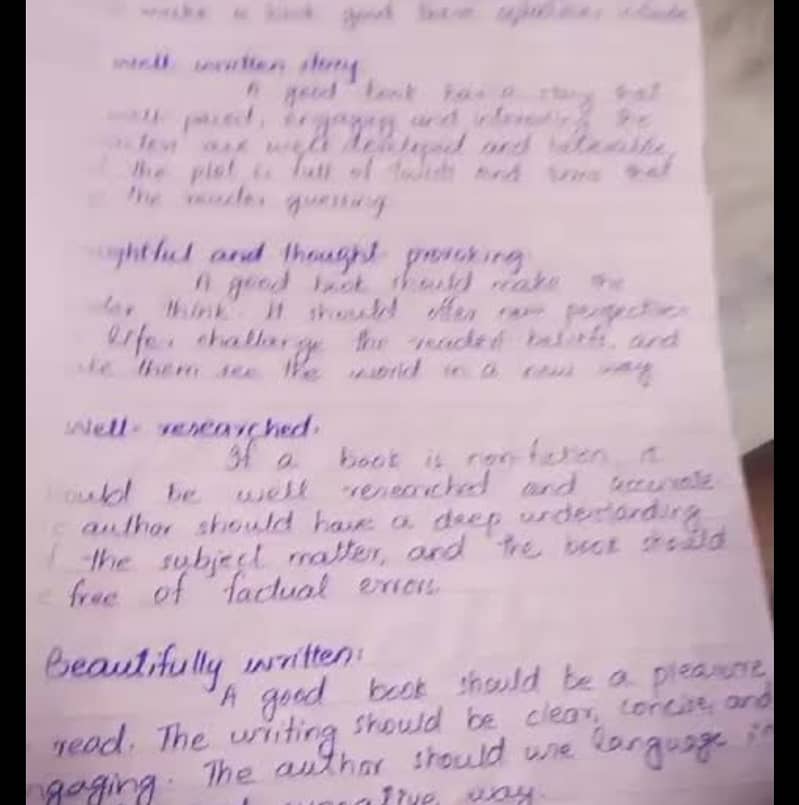 make a book good have
well written story
A good book has a story that
well paced, engaging and interesting. The
are well developed and relatable
the plot is full of twists and turns that
the reader guessing
ightful and thought provoking
A good book should make the
der think. It should offer new perspectives
life, challange the readers beliefs, and
ke them see the world in a new way
Well-researched.
If a book is non-fiction, it
ould be well researched and accurate
author should have a deep understanding
the subject matter, and the book should
free of factual errors.
Beautifully written:
A good book should be a pleasure
read. The writing should be clear, concise, and
ngaging. The author should use language in
way.